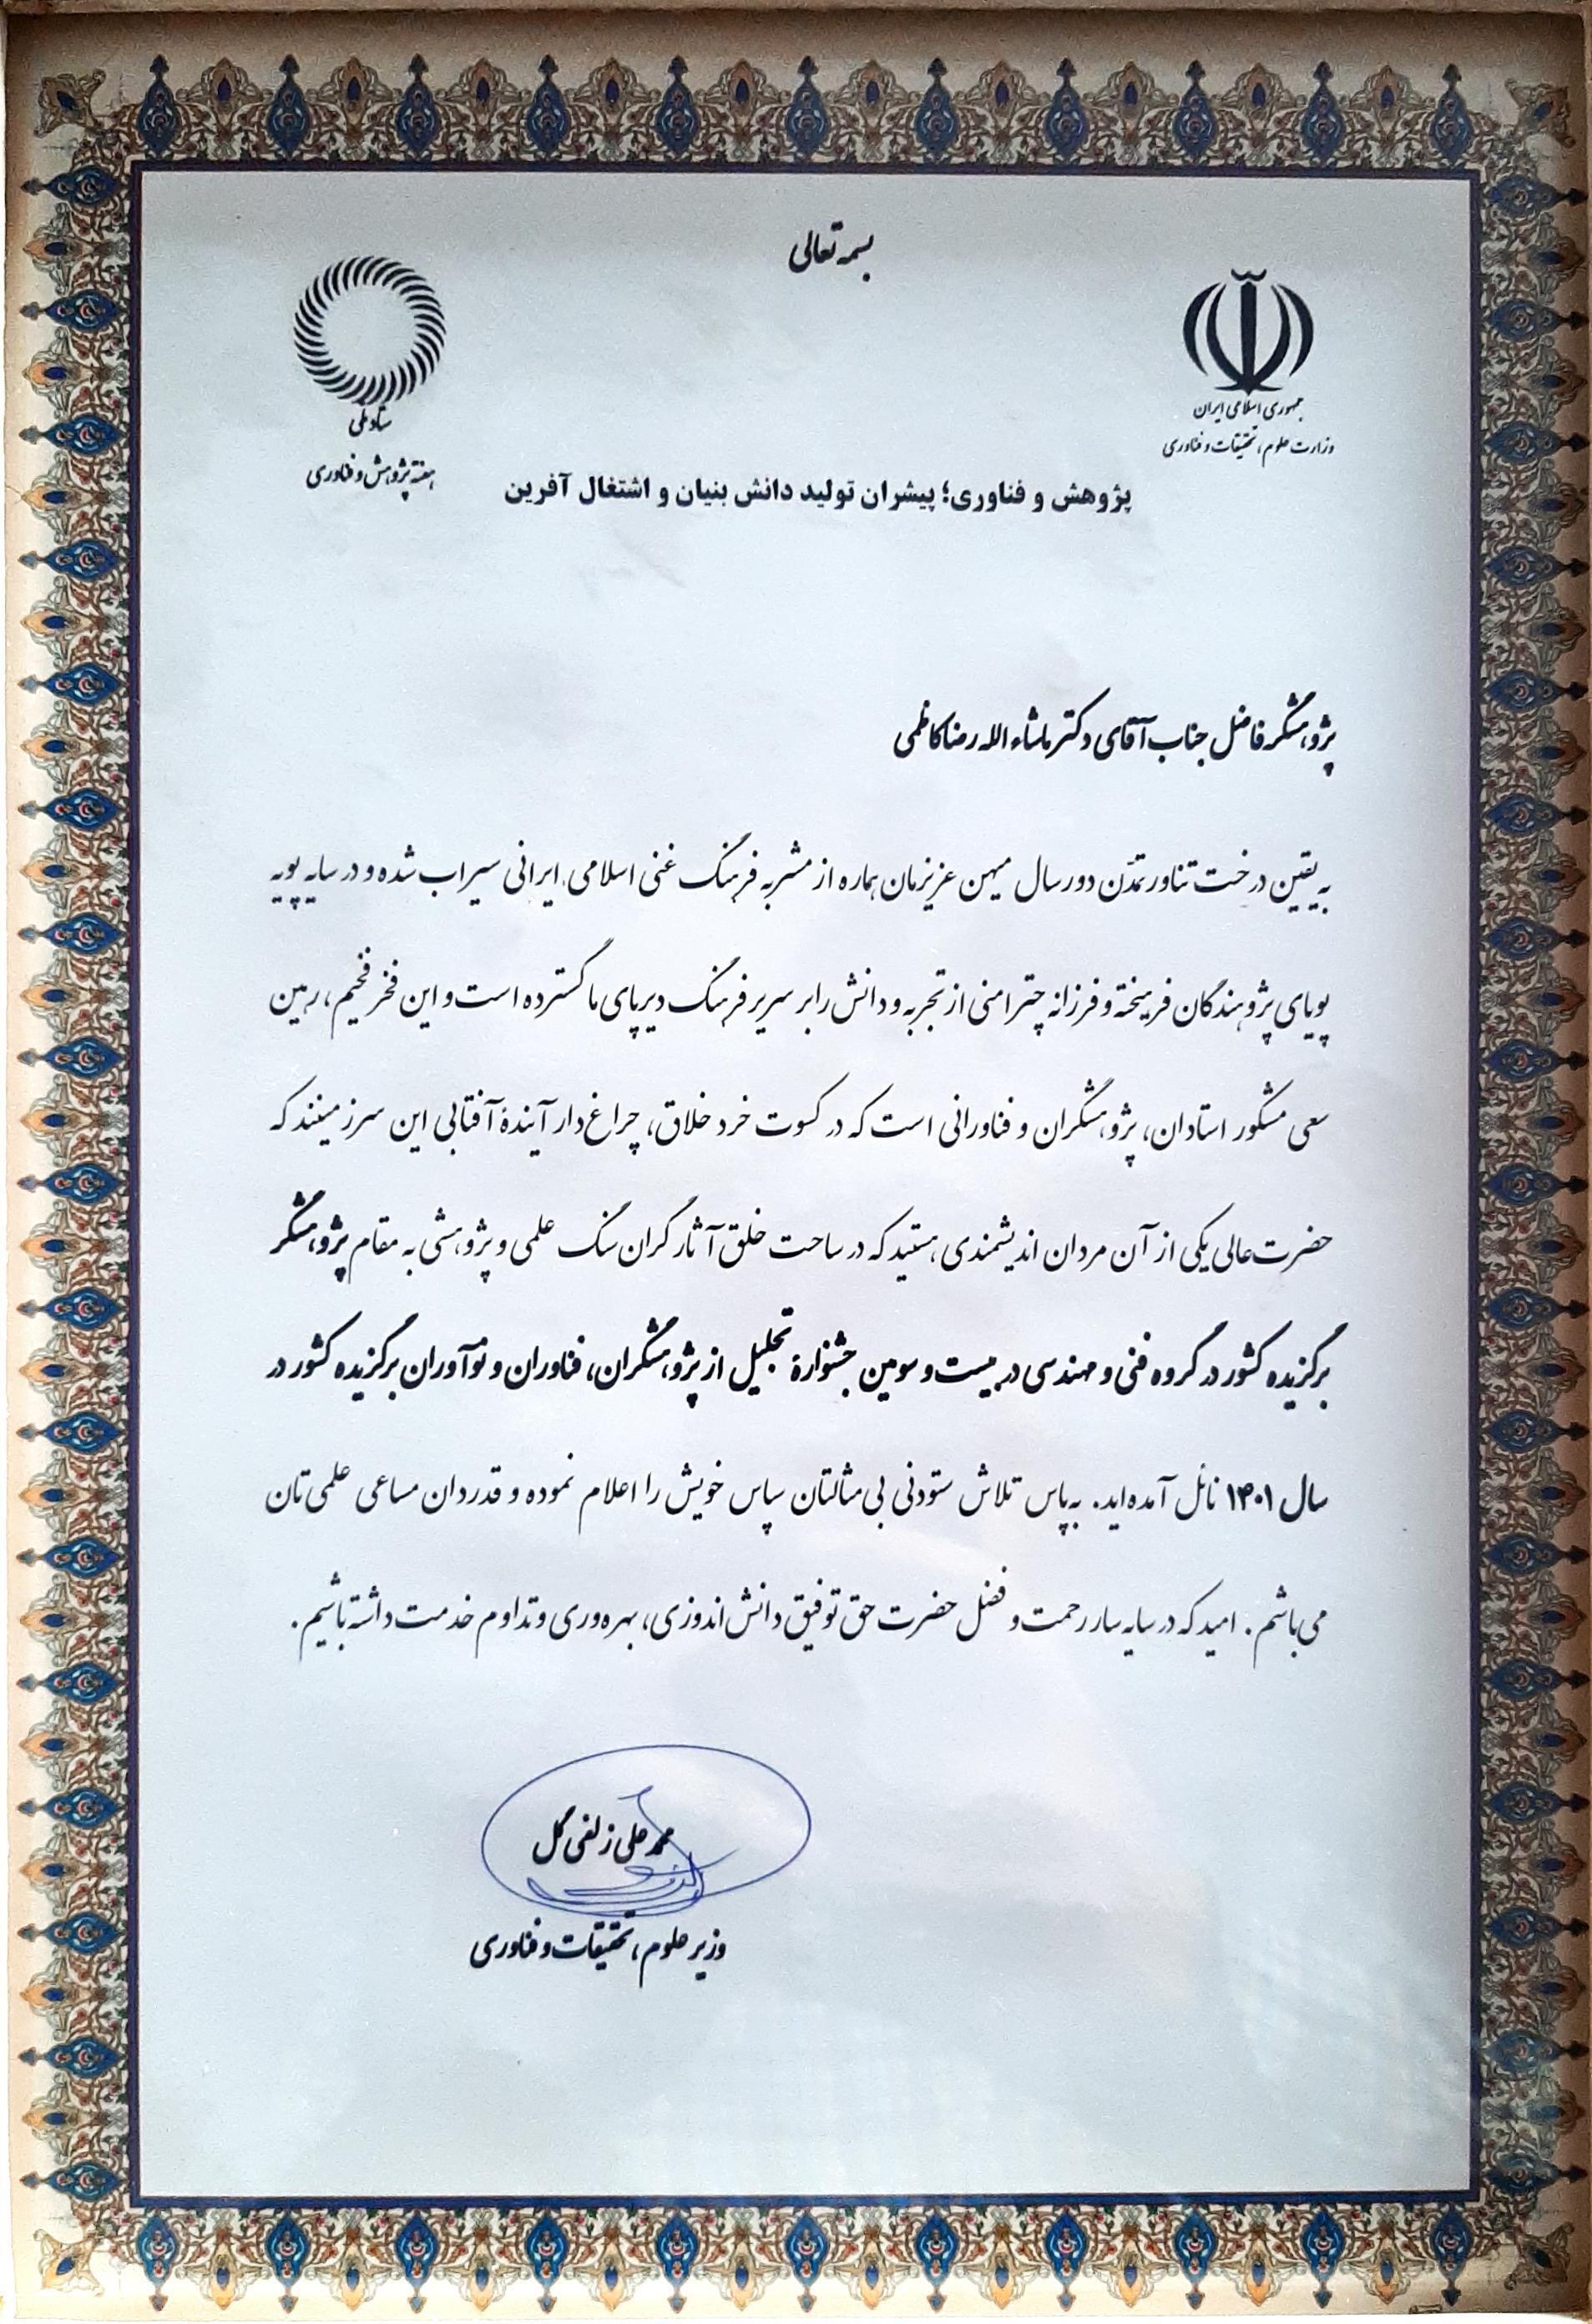 بسمه تعالی
جمهوری اسلامی ایران
وزارت علوم، تحقیقات و فناوری
ستاد ملی
هفته پژوهش و فناوری
پژوهش و فناوری؛ پیشران تولید دانش بنیان و اشتغال آفرین
پژوهشگر فاضل جناب آقای دکتر ماشاء الله رضا کاظمی
به یقین درخت تناور تمدّن دور سال میهن عزیزمان هماره از مشربه فرهنگ غنی اسلامی ایرانی سیراب شده و در سایه پویه
پویای پژوهندگان فرهیخته و فرزانه چتر امنی از تجربه و دانش را بر سریر فرهنگ دیرپای ما گسترده است و این فخر فخیم، رهین
سعی مشکور استادان، پژوهشگران و فناورانی است که در کسوت خرد خلاق، چراغ‌دار آیندهٔ آفتابی این سرزمینند که
حضرت عالی یکی از آن مردان اندیشمندی هستید که در ساحت خلق آثار گران سنگ علمی و پژوهشی به مقام پژوهشگر
برگزیده کشور در گروه فنی و مهندسی در بیست و سومین جشنوارهٔ تجلیل از پژوهشگران، فناوران و نوآوران برگزیده کشور در
سال ۱۴۰۱ نائل آمده‌اید. به پاس تلاش ستودنی بی‌مثالتان سپاس خویش را اعلام نموده و قدردان مساعی علمی‌تان
می‌باشم. امید که در سایه سار رحمت و فضل حضرت حق توفیق دانش‌اندوزی، بهره‌وری و تداوم خدمت داشته باشیم.
محمد علی زلفی گل
وزیر علوم، تحقیقات و فناوری